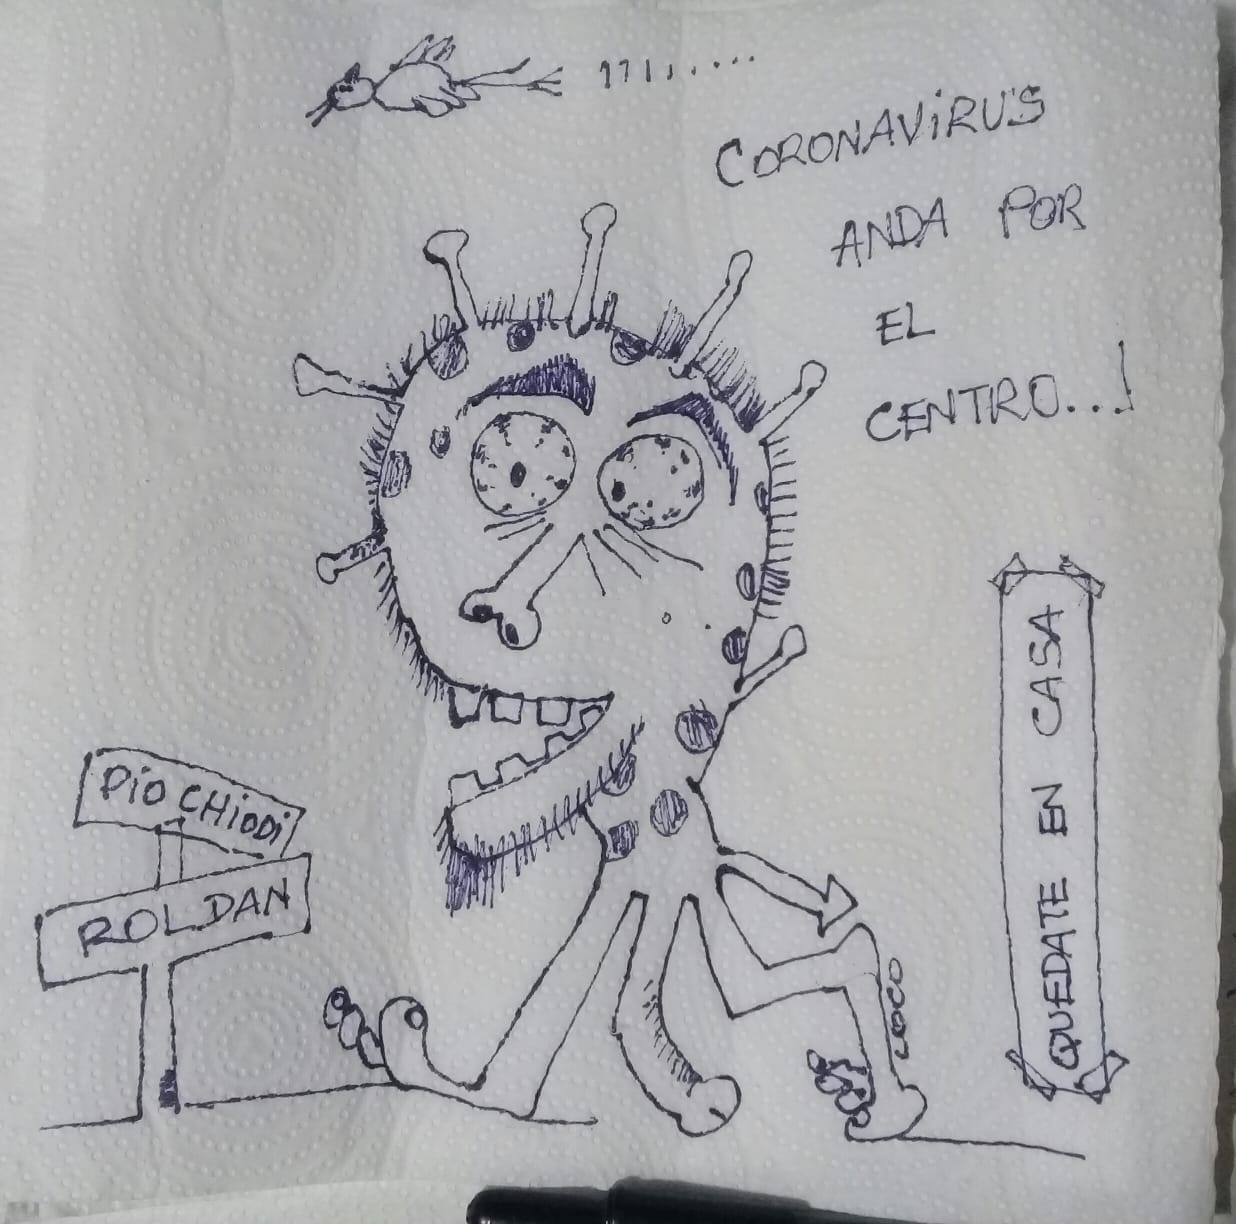 CORONAVIRUS
ANDA POR
EL
CENTRO...!
PIO CHIODI
ROLDAN
QUEDATE EN CASA
LOCO